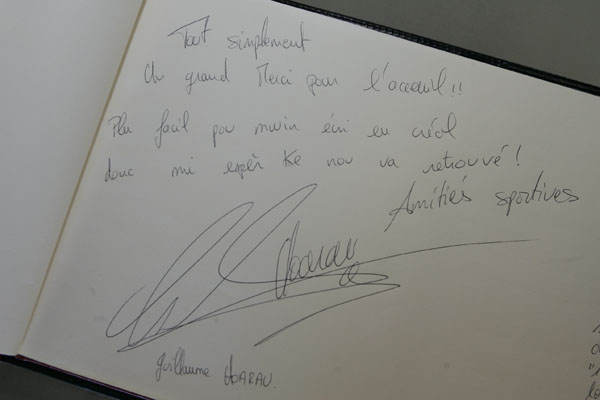 Tout simplement
Un grand Merci pour l'accueuil!!
Plu facil pou mwin écri en créol
donc mi espèr ke nou va retrouvé!
Amitiés sportives
Guillaume HOARAU.